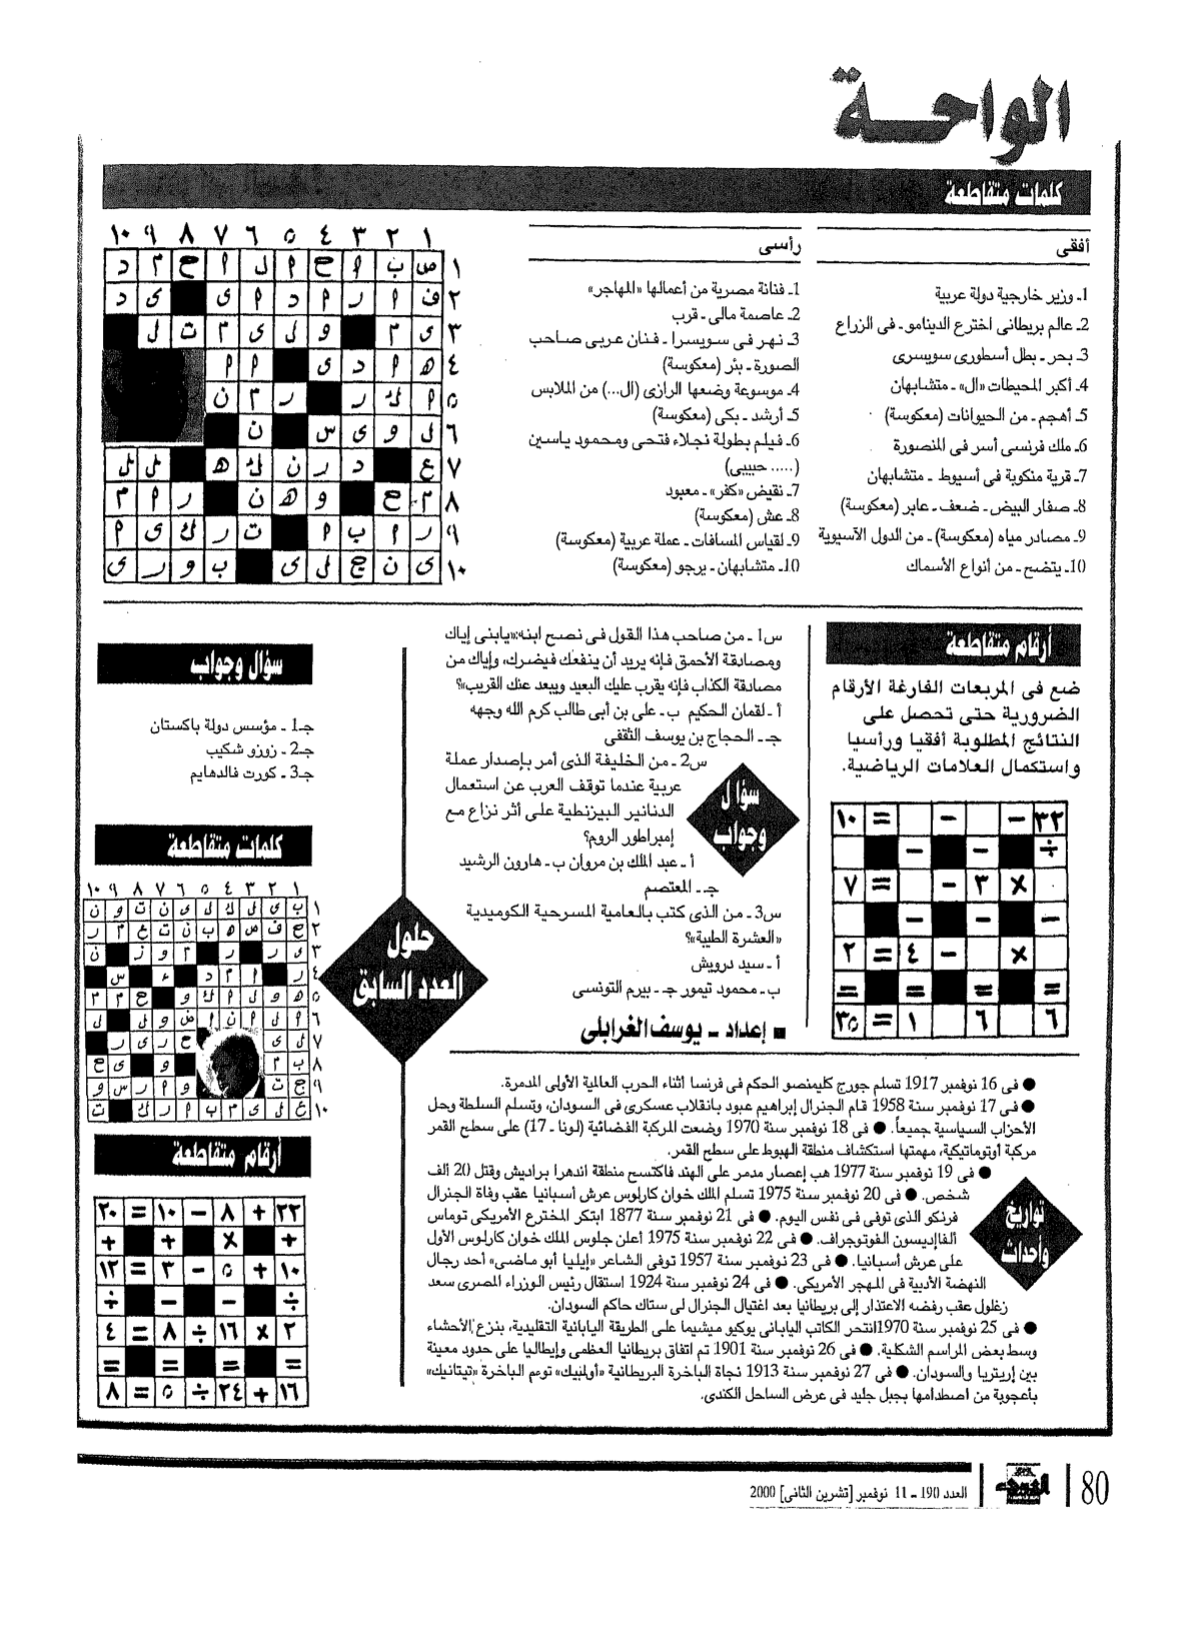 الواحـــة
كلمات متقاطعة
أفقى
1ـ وزير خارجية دولة عربية
2ـ عالم بريطانى اخترع الدينامو ـ فى الزراع
3ـ بحر ـ بطل أسطورى سويسرى
4ـ أكبر المحيطات «ال» ـ متشابهان
5ـ أهجم ـ من الحيوانات (معكوسة)
6ـ ملك فرنسى أسر فى المنصورة
7ـ قرية منكوبة فى أسيوط ـ متشابهان
8ـ صفار البيض ـ ضعف ـ عابر (معكوسة)
9ـ مصادر مياه (معكوسة) ـ من الدول الآسيوية
10ـ يتضح ـ من أنواع الأسماك
رأسى
1ـ فنانة مصرية من أعمالها «المهاجر»
2ـ عاصمة مالى ـ قرب
3ـ نهر فى سويسرا ـ فنان عربى صاحب
الصورة ـ بئر (معكوسة)
4ـ موسوعة وضعها الرازى (ال...) من الملابس
5ـ أرشد ـ بكى (معكوسة)
6ـ فيلم بطولة نجلاء فتحى ومحمود ياسين
(..... حبيبى)
7ـ نقيض «كفر» ـ معبود
8ـ عش (معكوسة)
9ـ لقياس المسافات ـ عملة عربية (معكوسة)
10ـ متشابهان ـ يرجو (معكوسة)
١ ٢ ٣ ٤ ٥ ٦ ٧ ٨ ٩ ١٠
١ ص ب ا ح ا ل ا ح م د
٢ ف ا ر ا د ا ى ى د
٣ ى م و ل ى م ت ل
٤ ه ا د ى ا ا
٥ ا ك ر ر م ن
٦ ل و ى س ن
٧ ع د ر ن ك ه ل ل
٨ م ح و ه ن ر ا م
٩ ر ا ب ا ت ر ك ى ا
١٠ ى ن ج ل ى ب و ر ى
أرقام متقاطعة
ضع فى المربعات الفارغة الأرقام
الضرورية حتى تحصل على
النتائج المطلوبة أفقيا ورأسيا
واستكمال العلامات الرياضية.
٣٢ − − = ١٠
÷ − −
× ٣ − = ٧
− − −
× − ٤ = ٢
= = = =
٦ ٦ ١ = ٣٥
س1 ـ من صاحب هذا القول فى نصح ابنه: «يابنى إياك
ومصادقة الأحمق فإنه يريد أن ينفعك فيضرك، وإياك من
مصادقة الكذاب فإنه يقرب عليك البعيد ويبعد عنك القريب»؟
أ ـ لقمان الحكيم ب ـ على بن أبى طالب كرم الله وجهه
جـ ـ الحجاج بن يوسف الثقفى
س2 ـ من الخليفة الذى أمر بإصدار عملة
عربية عندما توقف العرب عن استعمال
الدنانير البيزنطية على أثر نزاع مع
إمبراطور الروم؟
أ ـ عبد الملك بن مروان ب ـ هارون الرشيد
جـ ـ المعتصم
س3 ـ من الذى كتب بالعامية المسرحية الكوميدية
«العشرة الطيبة»؟
أ ـ سيد درويش
ب ـ محمود تيمور جـ ـ بيرم التونسى
■ إعداد ـ يوسف الغرابلى
سؤال
وجواب
حلول
العدد السابق
سؤال وجواب
جـ1 ـ مؤسس دولة باكستان
جـ2 ـ زوزو شكيب
جـ3 ـ كورت فالدهايم
كلمات متقاطعة
١ ٢ ٣ ٤ ٥ ٦ ٧ ٨ ٩ ١٠
أرقام متقاطعة
٢٢ + ٨ − ١٠ = ٢٠
+ × + +
١٠ + ٥ − ٣ = ١٢
÷ − − ÷
٢ × ١٦ ÷ ٨ = ٤
= = = =
١٦ + ٢٤ ÷ ٥ = ٨
تواريخ
وأحداث
● فى 16 نوفمبر 1917 تسلم جورج كليمنصو الحكم فى فرنسا أثناء الحرب العالمية الأولى المدمرة.
● فى 17 نوفمبر سنة 1958 قام الجنرال إبراهيم عبود بانقلاب عسكرى فى السودان، وتسلم السلطة وحل
الأحزاب السياسية جميعاً. ● فى 18 نوفمبر سنة 1970 وضعت المركبة الفضائية (لونا ـ 17) على سطح القمر
مركبة أوتوماتيكية، مهمتها استكشاف منطقة الهبوط على سطح القمر.
● فى 19 نوفمبر سنة 1977 هب إعصار مدمر على الهند فاكتسح منطقة اندهرا براديش وقتل 20 ألف
شخص. ● فى 20 نوفمبر سنة 1975 تسلم الملك خوان كارلوس عرش أسبانيا عقب وفاة الجنرال
فرنكو الذى توفى فى نفس اليوم. ● فى 21 نوفمبر سنة 1877 ابتكر المخترع الأمريكى توماس
ألفاإديسون الفوتوجراف. ● فى 22 نوفمبر سنة 1975 أعلن جلوس الملك خوان كارلوس الأول
على عرش أسبانيا. ● فى 23 نوفمبر سنة 1957 توفى الشاعر «إيليا أبو ماضى» أحد رجال
النهضة الأدبية فى المهجر الأمريكى. ● فى 24 نوفمبر سنة 1924 استقال رئيس الوزراء المصرى سعد
زغلول عقب رفضه الاعتذار إلى بريطانيا بعد اغتيال الجنرال لى ستاك حاكم السودان.
● فى 25 نوفمبر سنة 1970انتحر الكاتب اليابانى يوكيو ميشيما على الطريقة اليابانية التقليدية، بنزع الأحشاء
وسط بعض المراسم الشكلية. ● فى 26 نوفمبر سنة 1901 تم اتفاق بريطانيا العظمى وإيطاليا على حدود معينة
بين إريتريا والسودان. ● فى 27 نوفمبر سنة 1913 نجاة الباخرة البريطانية «أولمبيك» توءم الباخرة «تيتانيك»
بأعجوبة من اصطدامها بجبل جليد فى عرض الساحل الكندى.
80
العدد 190 ـ 11 نوفمبر [تشرين الثانى] 2000